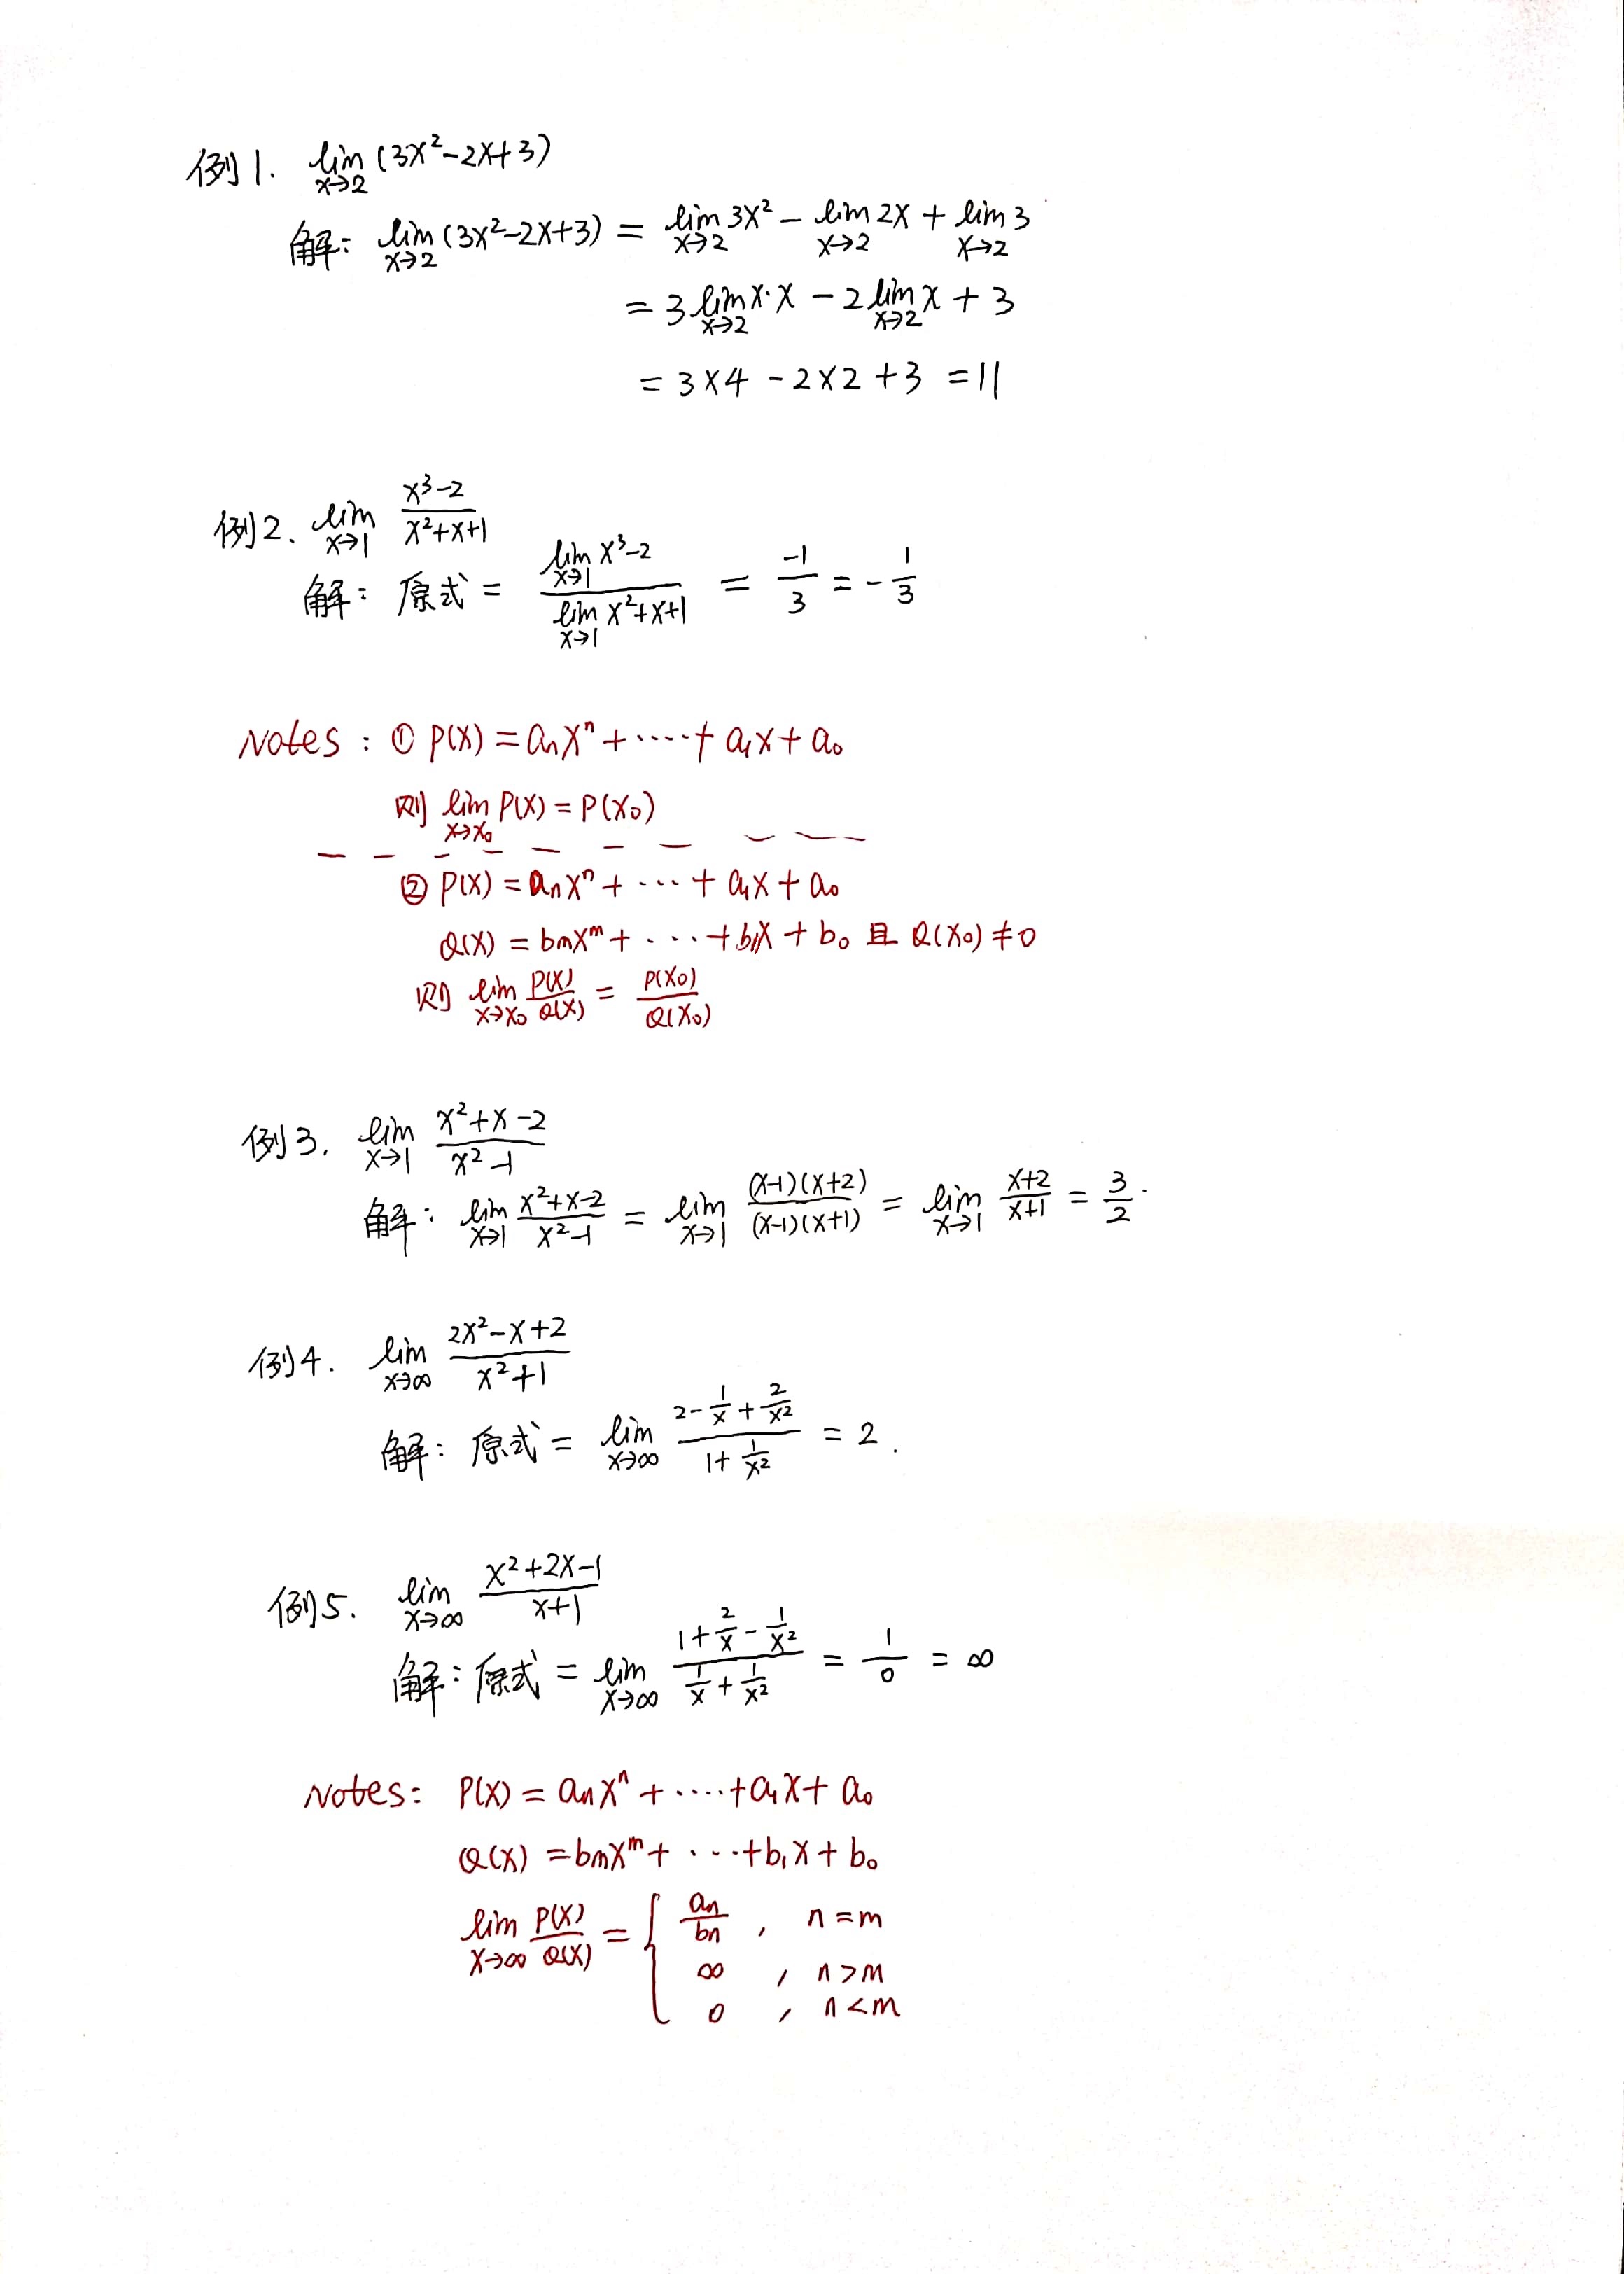 例1. lim_{x→2} (3x²-2x+3)
解: lim_{x→2} (3x²-2x+3) = lim_{x→2} 3x² - lim_{x→2} 2x + lim_{x→2} 3
= 3 lim_{x→2} x·x - 2 lim_{x→2} x + 3
= 3×4 - 2×2 + 3 = 11
例2. lim_{x→1} \frac{x³-2}{x²+x+1}
解: 原式 = \frac{lim_{x→1} x³-2}{lim_{x→1} x²+x+1} = \frac{-1}{3} = -\frac{1}{3}
Notes: ① P(x) = a_n x^n + ····· + a_1 x + a_0
则 lim_{x→x_0} P(x) = P(x_0)
② P(x) = a_n x^n + ··· + a_1 x + a_0
Q(x) = b_m x^m + ···· + b_1 x + b_0 且 Q(x_0) ≠ 0
则 lim_{x→x_0} \frac{P(x)}{Q(x)} = \frac{P(x_0)}{Q(x_0)}
例3. lim_{x→1} \frac{x²+x-2}{x²-1}
解: lim_{x→1} \frac{x²+x-2}{x²-1} = lim_{x→1} \frac{(x-1)(x+2)}{(x-1)(x+1)} = lim_{x→1} \frac{x+2}{x+1} = \frac{3}{2}.
例4. lim_{x→∞} \frac{2x²-x+2}{x²+1}
解: 原式 = lim_{x→∞} \frac{2-\frac{1}{x}+\frac{2}{x²}}{1+\frac{1}{x²}} = 2.
例5. lim_{x→∞} \frac{x²+2x-1}{x+1}
解: 原式 = lim_{x→∞} \frac{1+\frac{2}{x}-\frac{1}{x²}}{\frac{1}{x}+\frac{1}{x²}} = \frac{1}{0} = ∞
Notes: P(x) = a_n x^n + ····· + a_1 x + a_0
Q(x) = b_m x^m + ···· + b_1 x + b_0
lim_{x→∞} \frac{P(x)}{Q(x)} = { \frac{a_n}{b_n} , n=m
∞ , n>m
0 , n<m